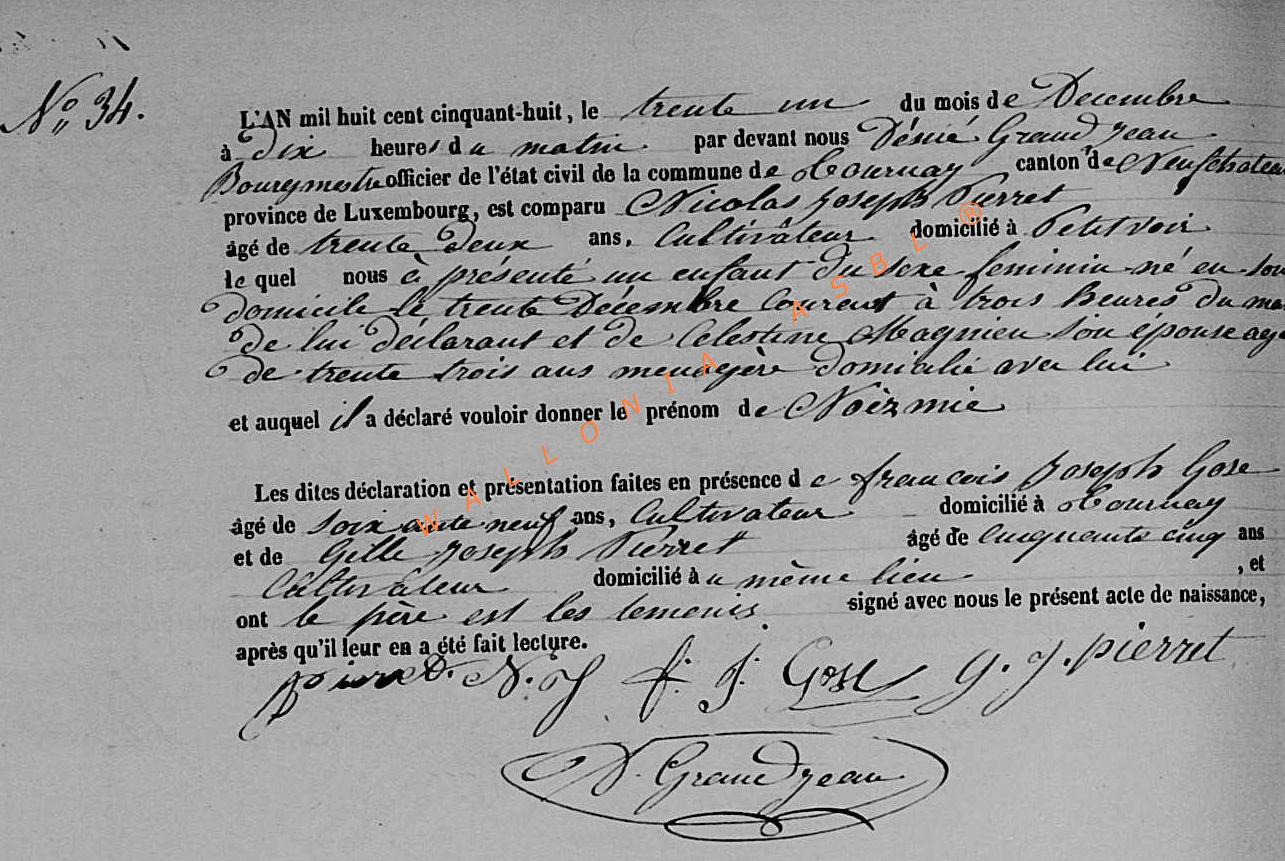 N° 34.
L'AN mil huit cent cinquant-huit, le trente un du mois de Decembre
à Dix heures du matin par devant nous Désiré Grand Jean
Bourgmestre officier de l'état civil de la commune de Tournay canton de Neufchateau
province de Luxembourg, est comparu Nicolas Joseph Pierret
âgé de trente Deux ans, Cultivâteur domicilié à Petitvoir
le quel nous à présenté un enfant Du sexe feminin né en son
domicile le trente Décembre Courent à trois heures Du ma
De lui déclarant et de Celestine Magnien son épouse agé
de trente trois ans menagère Domicilié avec lui
et auquel il a déclaré vouloir donner le prénom de Noèzmie
Les dites déclaration et présentation faites en présence de françois Joseph Gose
âgé de soixante neuf ans, Cultivateur domicilié à Tournay
et de Gille Joseph Pierret âgé de Cinquante cinq ans
Cultivateur domicilié au même lieu , et
ont le père est les temenis. signé avec nous le présent acte de naissance,
après qu'il leur en a été fait lecture.
pierret. N. J f. J. Gose g. j. pierret
D. Grand Jean
WALLONIA ASBL ®